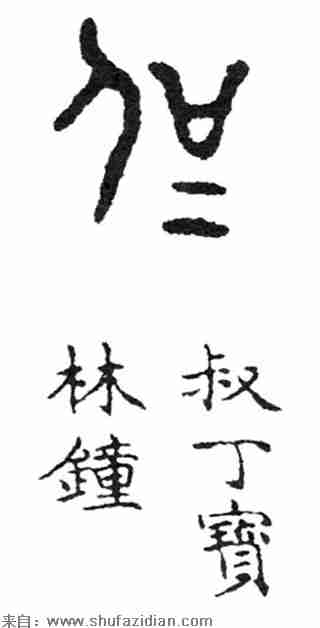 叔丁寶
林鐘
来自：www.shufazidian.com